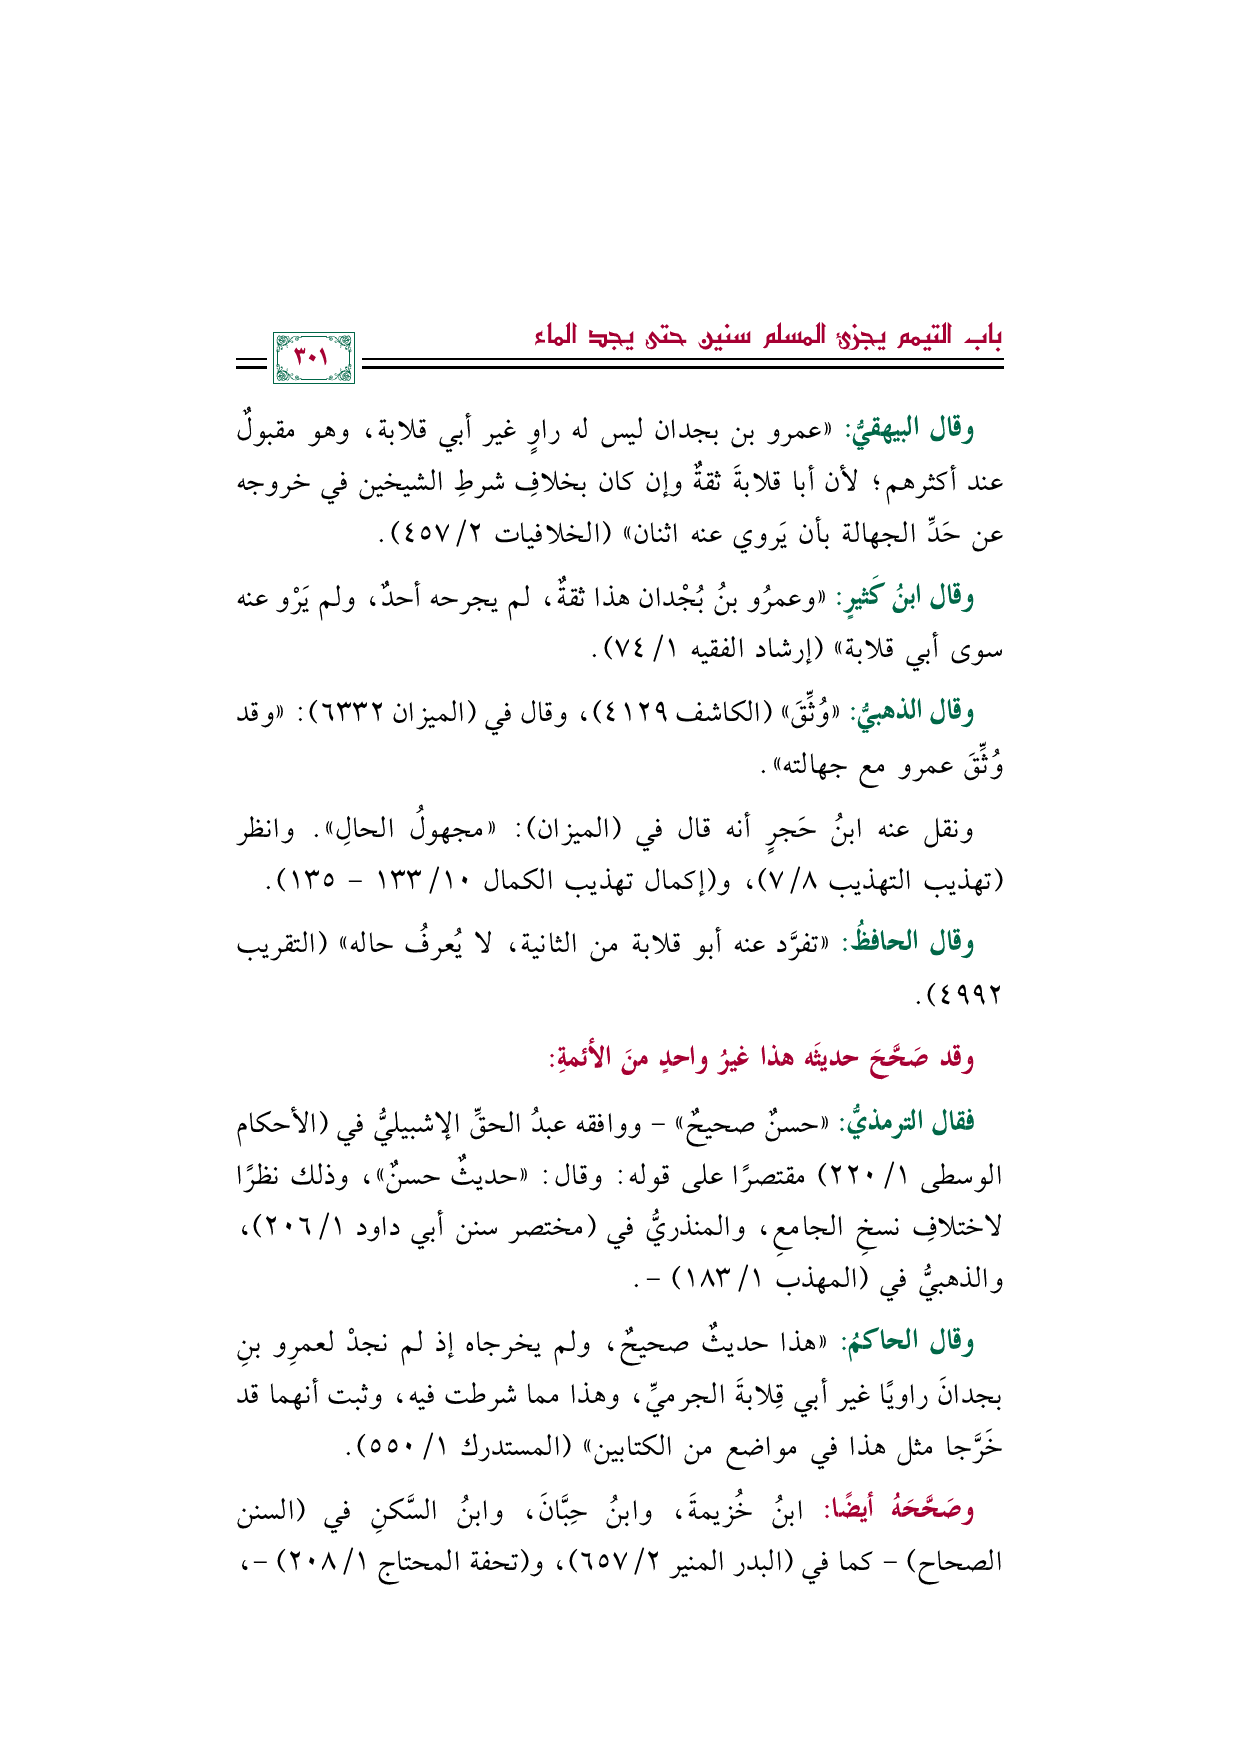 باب التيمم يجزئ المسلم سنين حتى يجد الماء
٣٠١
وقال البيهقيُّ: «عمرو بن بجدان ليس له راوٍ غير أبي قلابة، وهو مقبولٌ
عند أكثرهم؛ لأن أبا قلابةَ ثقةٌ وإن كان بخلافِ شرطِ الشيخين في خروجه
عن حَدِّ الجهالة بأن يَروي عنه اثنان» (الخلافيات ٢/ ٤٥٧).
وقال ابنُ كَثيرٍ: «وعمرُو بنُ بُجْدان هذا ثقةٌ، لم يجرحه أحدٌ، ولم يَرْو عنه
سوى أبي قلابة» (إرشاد الفقيه ١/ ٧٤).
وقال الذهبيُّ: «وُثِّقَ» (الكاشف ٤١٢٩)، وقال في (الميزان ٦٣٣٢): «وقد
وُثِّقَ عمرو مع جهالته».
ونقل عنه ابنُ حَجرٍ أنه قال في (الميزان): «مجهولُ الحالِ». وانظر
(تهذيب التهذيب ٨/ ٧)، و(إكمال تهذيب الكمال ١٠/ ١٣٣ – ١٣٥).
وقال الحافظُ: «تفرَّد عنه أبو قلابة من الثانية، لا يُعرفُ حاله» (التقريب
٤٩٩٢).
وقد صَحَّحَ حديثَه هذا غيرُ واحدٍ منَ الأئمةِ:
فقال الترمذيُّ: «حسنٌ صحيحٌ» – ووافقه عبدُ الحقِّ الإشبيليُّ في (الأحكام
الوسطى ١/ ٢٢٠) مقتصرًا على قوله: وقال: «حديثٌ حسنٌ»، وذلك نظرًا
لاختلافِ نسخِ الجامعِ، والمنذريُّ في (مختصر سنن أبي داود ١/ ٢٠٦)،
والذهبيُّ في (المهذب ١/ ١٨٣) –.
وقال الحاكمُ: «هذا حديثٌ صحيحٌ، ولم يخرجاه إذ لم نجدْ لعمرِو بنِ
بجدانَ راويًا غير أبي قِلابةَ الجرميِّ، وهذا مما شرطت فيه، وثبت أنهما قد
خَرَّجا مثل هذا في مواضع من الكتابين» (المستدرك ١/ ٥٥٠).
وصَحَّحَهُ أيضًا: ابنُ خُزيمةَ، وابنُ حِبَّانَ، وابنُ السَّكنِ في (السنن
الصحاح) – كما في (البدر المنير ٢/ ٦٥٧)، و(تحفة المحتاج ١/ ٢٠٨) –،